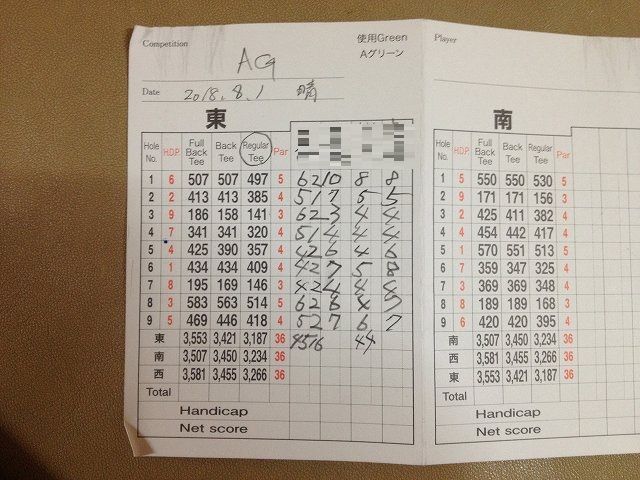 Competition
使用Green
Aグリーン
AG
Date 2018.8.1 晴
東
Hole No. H.D.P. Full Back Tee Back Tee Regular Tee Par
1 6 507 507 497 5 6 2 10 8 8
2 2 413 413 385 4 5 1 7 5 5
3 9 186 158 141 3 6 2 3 4 4
4 7 341 341 320 4 5 1 4 4 4
5 4 425 390 357 4 4 2 6 4 6
6 1 434 434 409 4 4 2 7 5 8
7 8 195 169 146 3 4 2 4 4 4
8 3 583 563 514 5 6 2 8 7
9 5 469 446 418 4 5 2 7 6 7
東 3,553 3,421 3,187 36 45 16 44
南 3,507 3,450 3,234 36
西 3,581 3,455 3,266 36
Total
Handicap
Net score
Player
南
Hole No. H.D.P. Full Back Tee Back Tee Regular Tee Par
1 5 550 550 530 5
2 9 171 171 156 3
3 2 425 411 382 4
4 4 454 442 417 4
5 1 570 551 513 5
6 7 359 347 325 4
7 3 369 369 348 4
8 8 189 189 168 3
9 6 420 420 395 4
南 3,507 3,450 3,234 36
西 3,581 3,455 3,266 36
東 3,553 3,421 3,187 36
Total
Handicap
Net score